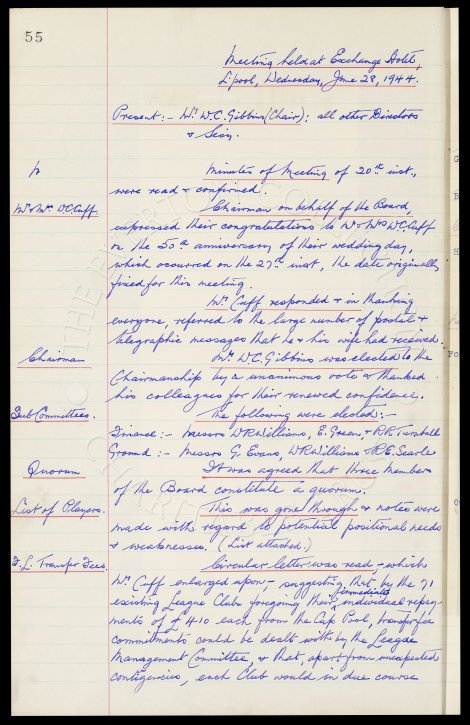 55
Meeting held at Exchange Hotel,
L'pool, Wednesday, June 28, 1944.
Present :- Mr. W.C. Gibbins (Chair); all other Directors
& Secy.
Minutes of Meeting of 20th inst.,
were read & confirmed.
Mr & Mrs. W.C. Cuff
Chairman on behalf of the Board,
expressed their congratulations to Mr & Mrs W.C. Cuff
on the 50th anniversary of their wedding day,
which occurred on the 27th inst, the date originally
fixed for this meeting.
Mr Cuff responded & in thanking
everyone, referred to the large number of postal &
telegraphic messages that he & his wife had received.
Chairman
Mr. W.C. Gibbins was elected to the
Chairmanship by a unanimous vote & thanked
his colleagues for their renewed confidence.
Sub Committees.
The following were elected:-
Finance :- Messrs W.R. Williams, E. Green, & R.R. Turnbull
Ground :- Messrs G. Evans, W.R. Williams & R.E. Searle
Quorum
It was agreed that three members
of the Board constitute a quorum.
List of Players.
This was gone through & notes were
made with regard to potential positional needs
& weaknesses. (List attached.)
F.L. Transfer Fees.
Circular letter was read, - which
Mr Cuff enlarged upon - suggesting that by the 71
existing League Clubs foregoing their individual repay-
ments of £410 each from the Cup Pool, transfer fee
commitments could be dealt with by the League
Management Committee, & that, apart from unexpected
contigencies, each Club would in due course